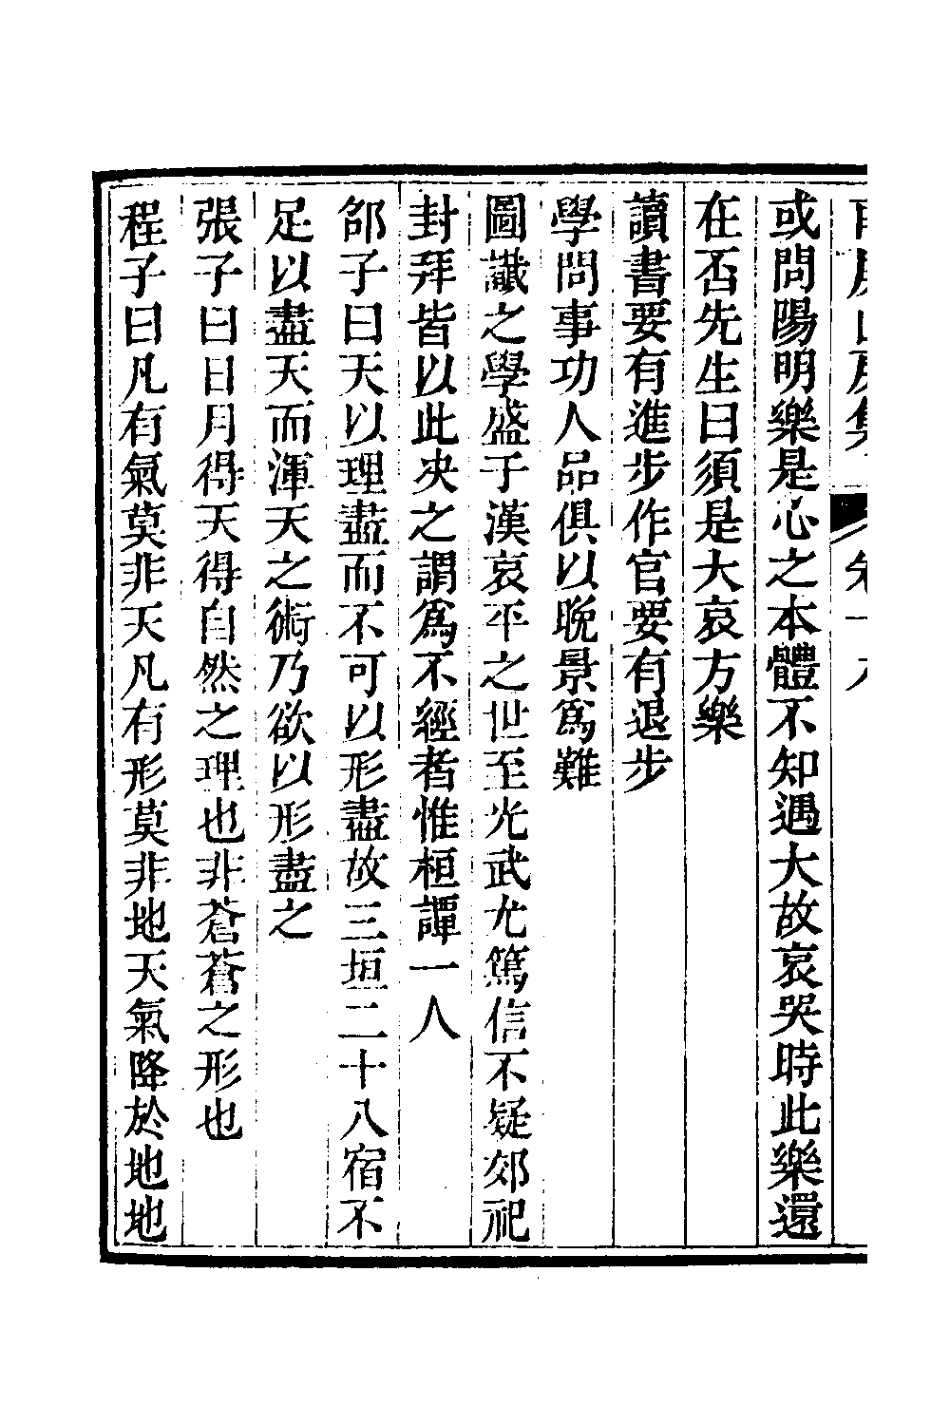 或問陽明樂是心之本體不知遇大故哀哭時此樂還
在否先生曰須是大哀方樂
讀書要有進步作官要有退步
學問事功人品俱以晚景爲難
圖讖之學盛于漢哀平之世至光武尤篤信不疑郊祀
封拜皆以此决之謂爲不經者惟桓譚一人
邵子曰天以理盡而不可以形盡故三垣二十八宿不
足以盡天而渾天之術乃欲以形盡之
張子曰日月得天得自然之理也非蒼蒼之形也
程子曰凡有氣莫非天凡有形莫非地天氣降於地地